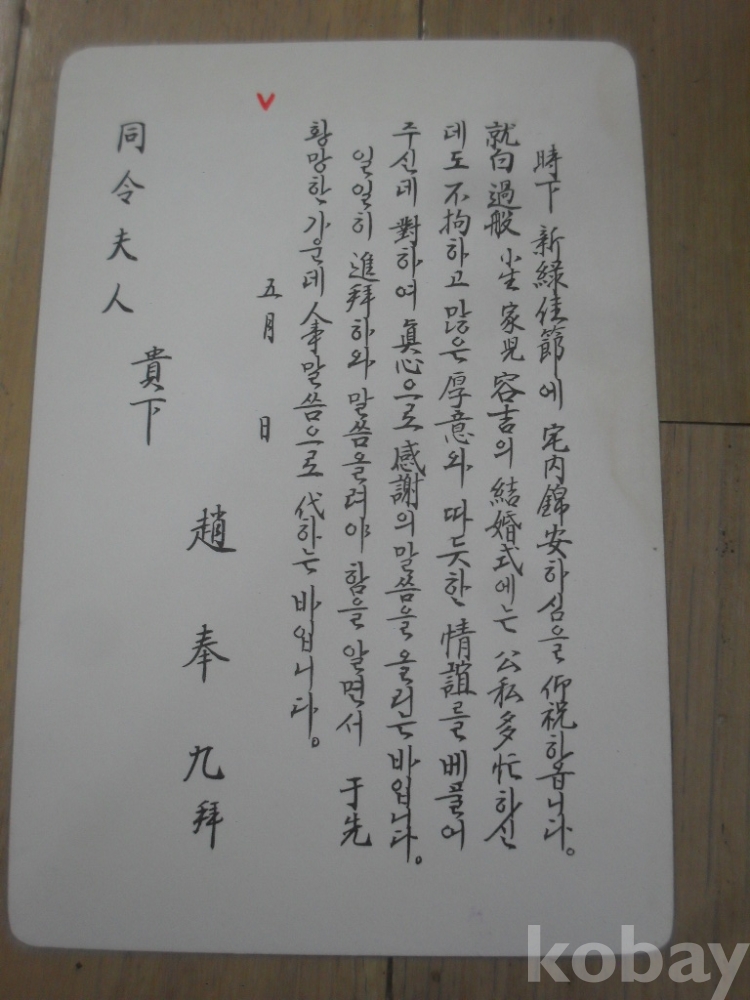 時下 新綠佳節에 宅內錦安하심을 仰祝하옵니다。
就白 過般 小生 家兒 容吉의 結婚式에는 公私多忙하신
데도 不拘하고 많은 厚意와 따듯한 情誼를 베풀어
주신데 對하여 眞心으로 感謝의 말씀을 올리는 바입니다。
일일히 進拜하와 말씀올려야 함을 알면서 于先
황망한 가운데 人事말씀으로 代하는 바입니다。
五月 日
趙奉九 拜
同令夫人 貴下
kobay